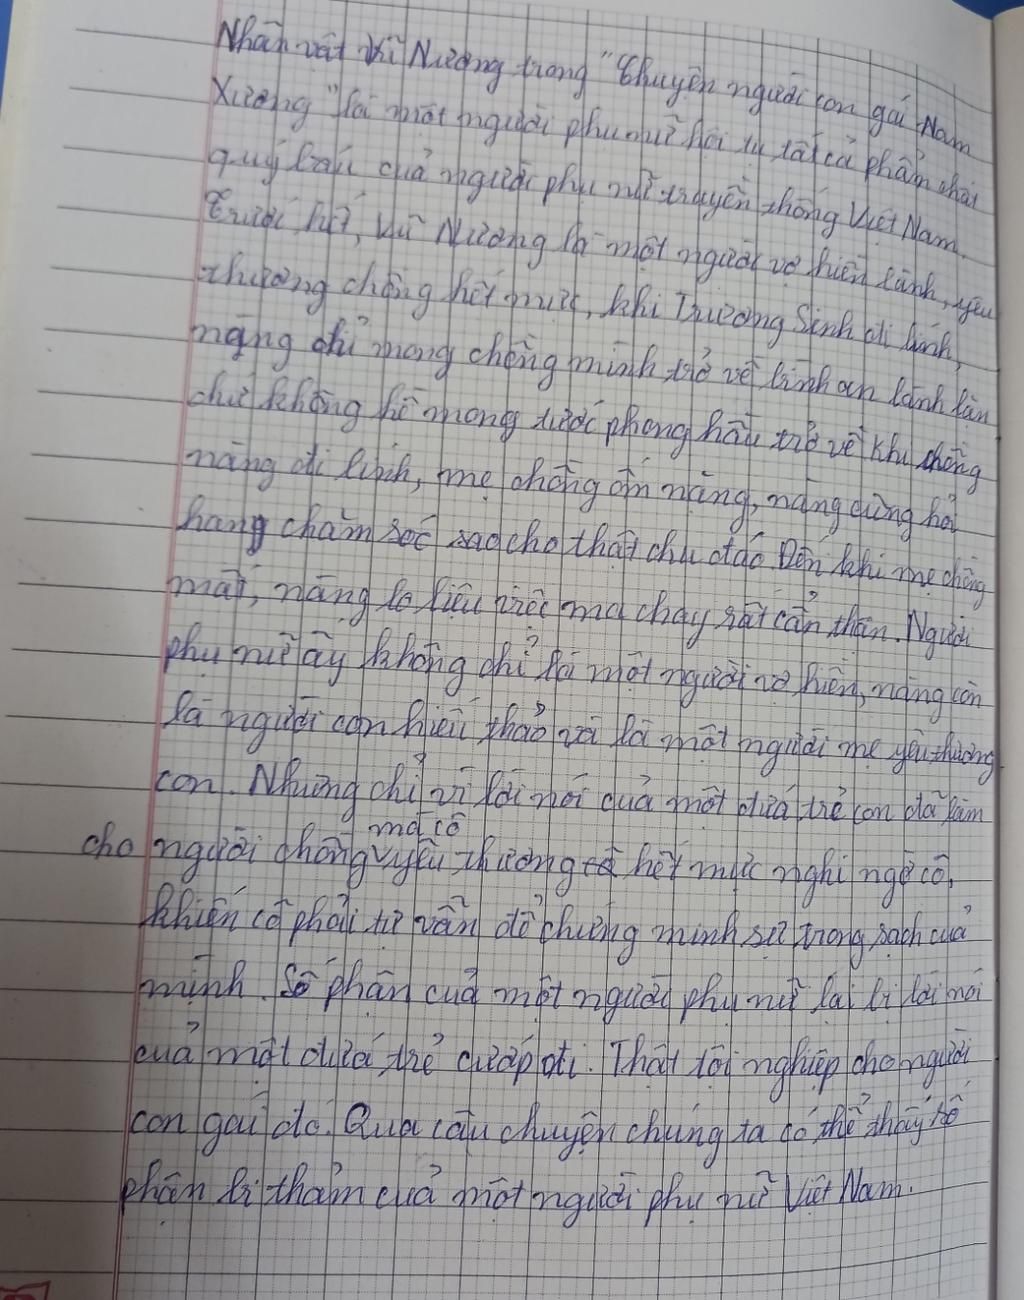 Nhân vật Vũ Nương trong "Chuyện người con gái Nam
Xương" là một người phụ nữ hội tụ tất cả phẩm chất
quý báu của người phụ nữ truyền thống Việt Nam.
Trước hết, Vũ Nương là một người vợ hiền lành, yêu
thương chồng hết mực, khi Trương Sinh đi lính,
nàng chỉ mong chồng mình trở về bình an lành lặn
chứ không hề mong tước phong hầu trở về. Khi chồng
nàng đi lính, mẹ chồng ốm nặng, nàng cũng hỏi
hang chăm sóc sao cho thật chu đáo. Đến khi mẹ chồng
mất, nàng lo liệu việc ma chay rất cẩn thận. Người
phụ nữ ấy không chỉ là một người vợ hiền, nàng còn
là người con hiếu thảo và là một người mẹ yêu thương
con. Nhưng chỉ vì lời nói của một đứa trẻ con đã làm
cho người chồng mà cô yêu thương hết mực nghi ngờ cô,
khiến cô phải tự vẫn để chứng minh sự trong sạch của
mình. Số phận của một người phụ nữ lại bị lời nói
của một đứa trẻ cướp đi. Thật tội nghiệp cho người
con gái đó. Qua câu chuyện chúng ta có thể thấy số
phận bi thảm của một người phụ nữ Việt Nam.